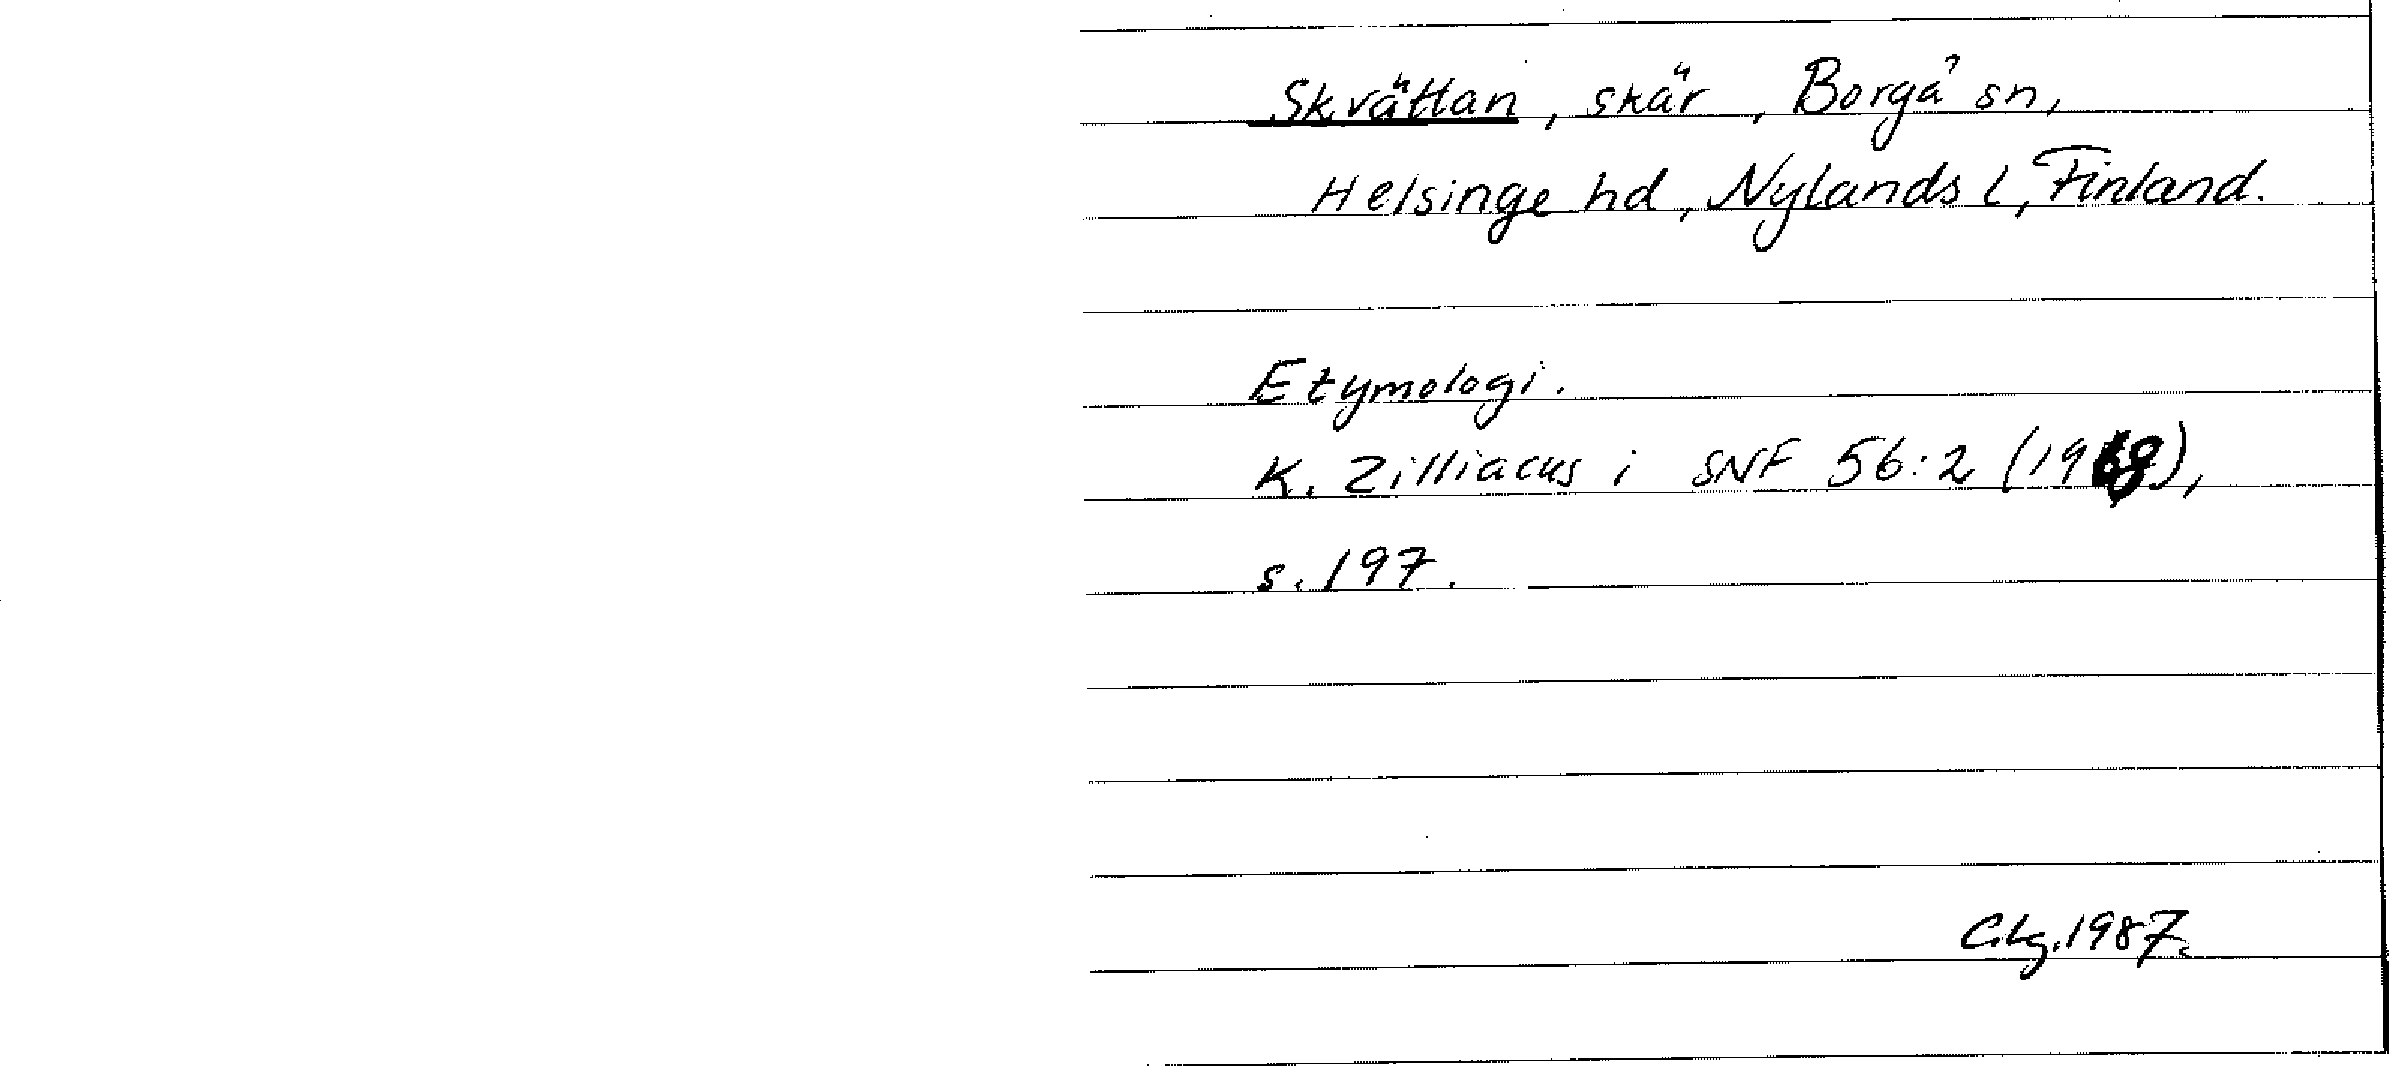 Skvättan, skär, Borgå sn,
Helsinge hd, Nylands l, Finland.
Etymologi.
K. Zilliacus i SNF 56:2
s. 197.
C.Lg. 1987.